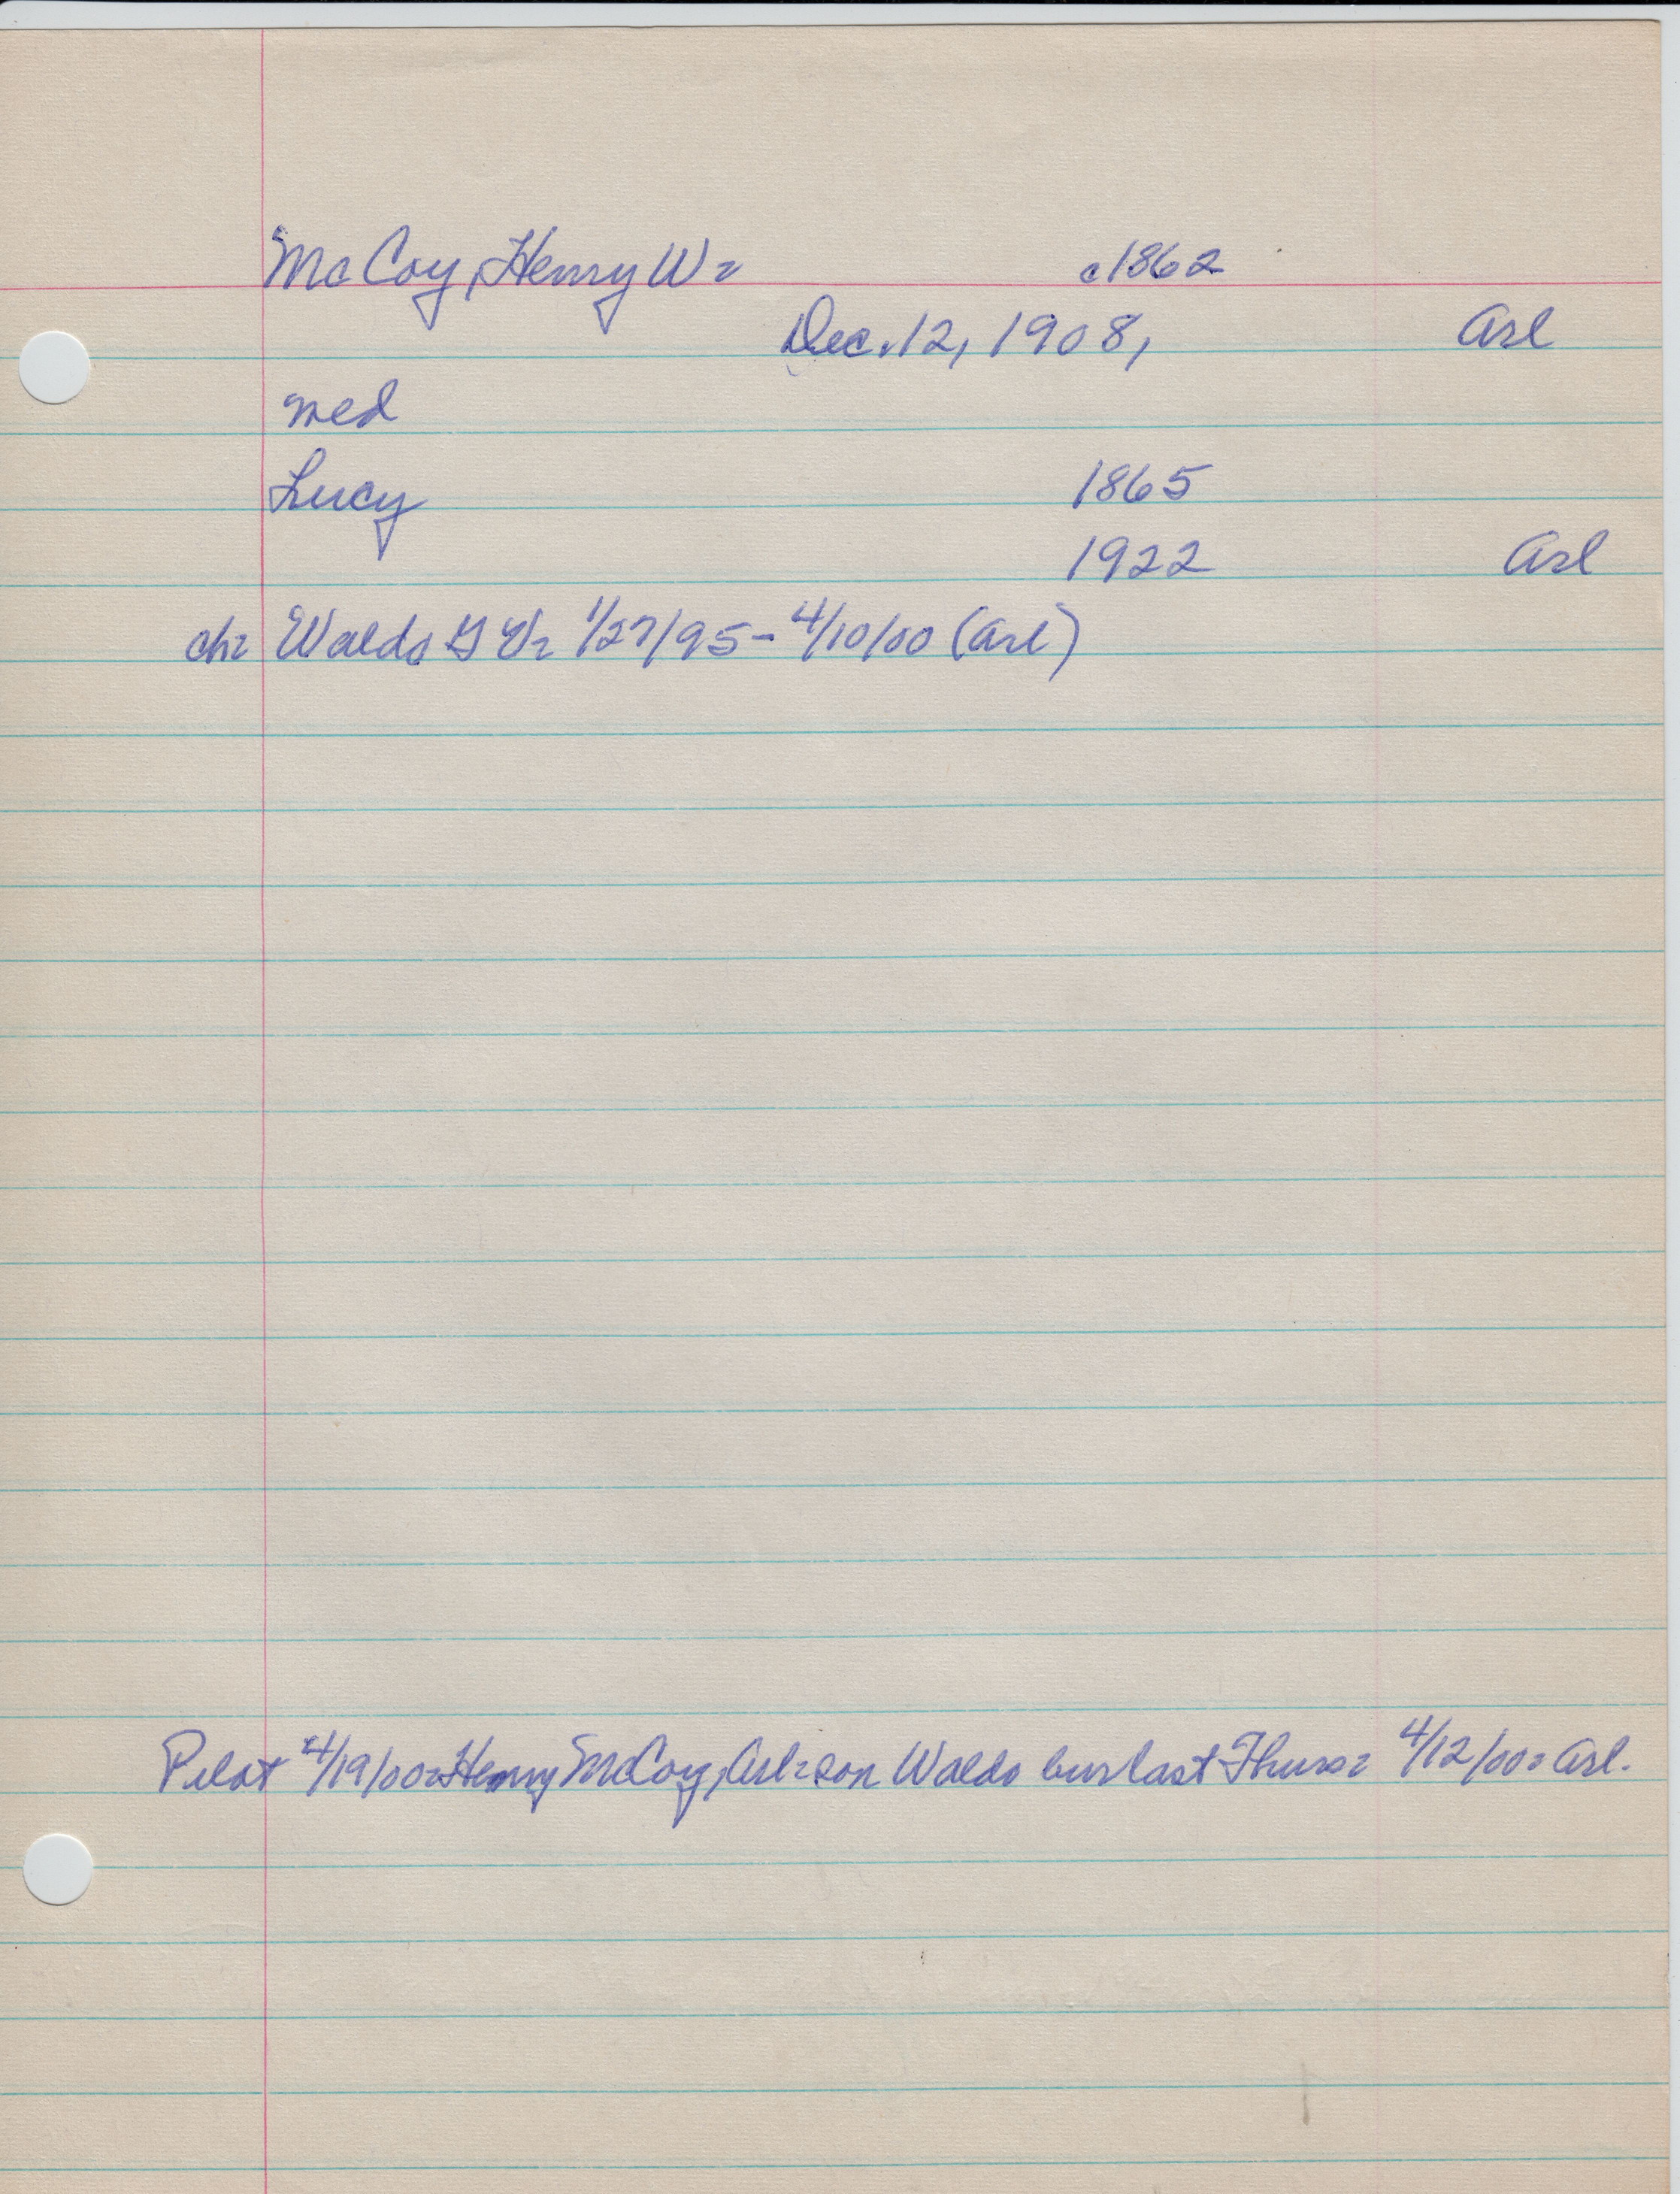 McCoy, Henry W= c1862
Dec. 12, 1908, Arl
med
Lucy 1865
1922 Arl
ch= Waldo G 1/27/95 - 4/10/00 (Arl)
Pilot 4/19/00= Henry McCoy, Arl= son Waldo bur last Thurs= 4/12/00= Arl.